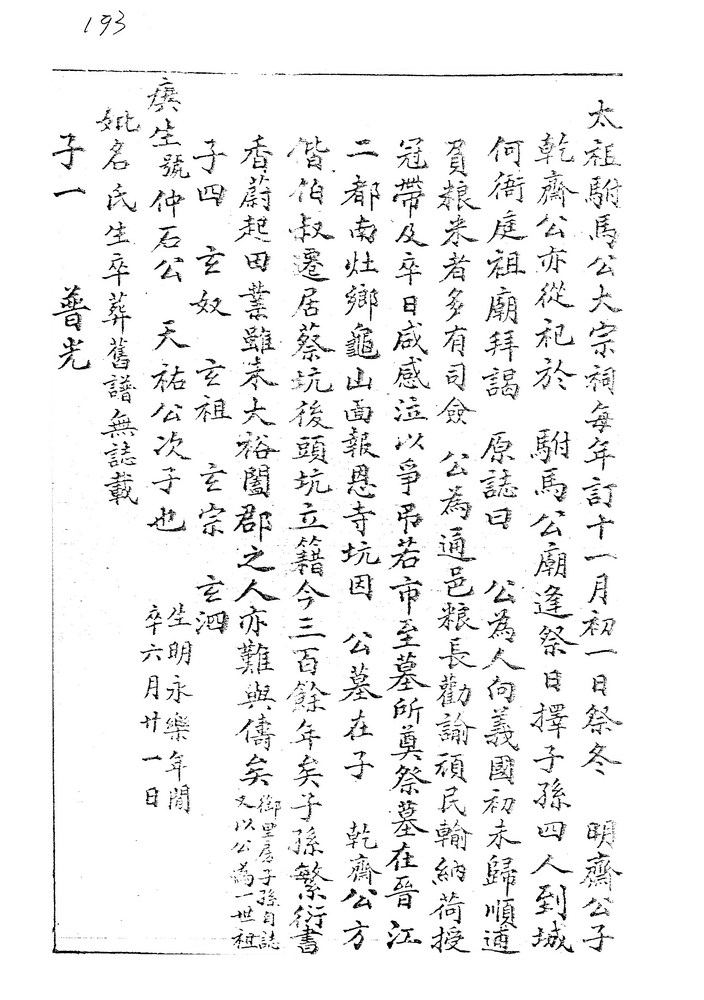 193
太祖駙馬公大宗祠每年訂十一月初一日祭冬 明齋公子
乾齋公亦從祀於 駙馬公廟逢祭日擇子孫四人到城
何衙庭祖廟拜謁 原誌曰 公為人向義國初未歸順逋
負粮米者多有司僉 公為通邑粮長勸諭頑民輸納荷授
冠帶及卒日咸感泣以爭吊若市至墓所奠祭墓在晉江
二都南灶鄉龜山面報恩寺坑因 公墓在子 乾齋公方
偕伯叔遷居蔡坑後頭坑立籍今三百餘年矣子孫繁衍書
香蔚起田業雖未大裕闔郡之人亦難與儔矣 御里房子孫自誌又以公為一世祖
子四 玄奴 玄祖 玄宗 玄泗
廣生號仲石公 天祐公次子也 生明永樂年間 卒六月廿一日
妣名氏生卒葬舊譜無誌載
子一 普光